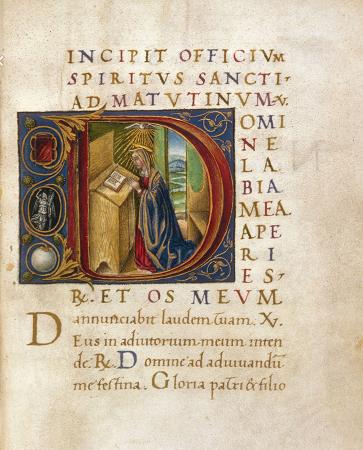 INCIPIT OFFICIVM
SPIRITVS SANCTI·
AD MATVTINVM·V.
DOMI
NE
LA
BIA
MEA.
APE
RI
ES·
R. ET OS MEVM
annunciabit laudem tuam. V.
Deus in adiutorium meum inten
de. R. Domine ad adiuvandū
me festina. Gloria patri & filio